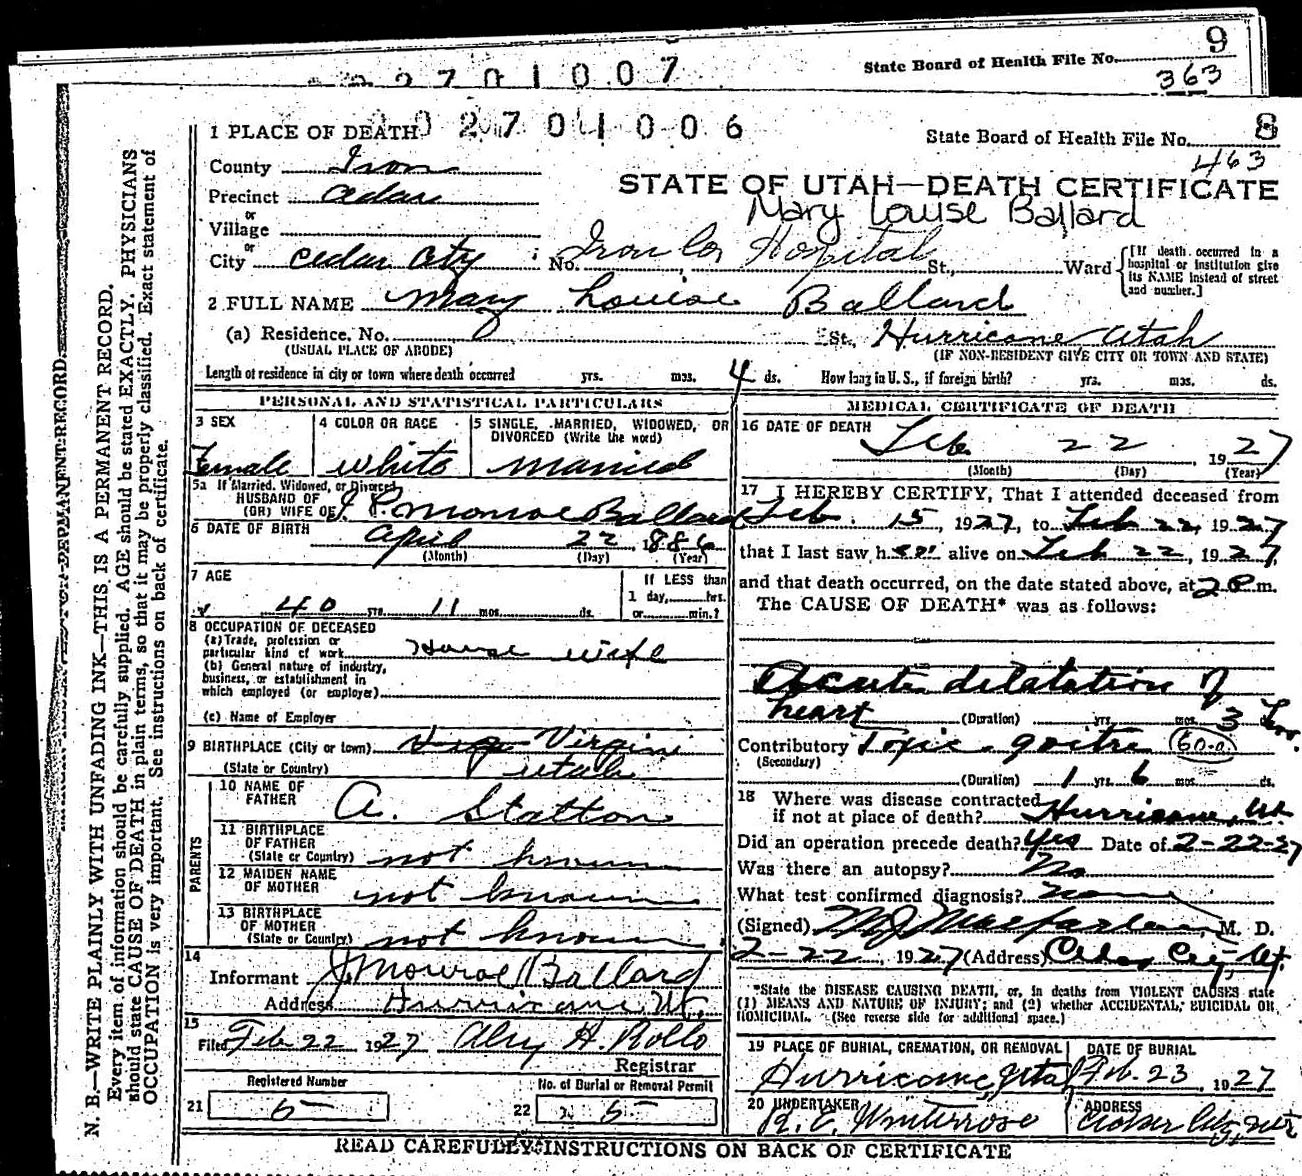 9
State Board of Health File No.
363
2 7 0 1 0 0 7
0 2 7 0 1 0 0 6
8
1 PLACE OF DEATH
State Board of Health File No.
463
County Iron
STATE OF UTAH—DEATH CERTIFICATE
Precinct Cedar
Mary Louise Ballard
or
Village
or
City Cedar City No. Iron Co Hospital St., Ward [If death occurred in a hospital or institution give its NAME instead of street and number.]
2 FULL NAME Mary Louise Ballard
(a) Residence. No. St. Hurricane Utah
(USUAL PLACE OF ABODE) (IF NON-RESIDENT GIVE CITY OR TOWN AND STATE)
Length of residence in city or town where death occurred yrs. mos. 4 ds. How long in U.S., if foreign birth? yrs. mos. ds.
PERSONAL AND STATISTICAL PARTICULARS
3 SEX 4 COLOR OR RACE 5 SINGLE, MARRIED, WIDOWED, OR DIVORCED (Write the word)
Female white married
5a If Married, Widowed, or Divorced
HUSBAND OF
(OR) WIFE OF J. Monroe Ballard
6 DATE OF BIRTH April 22, 1886
(Month) (Day) (Year)
7 AGE If LESS than
1 day, hrs.
40 yrs. 11 mos. ds. or min.?
8 OCCUPATION OF DECEASED
(a) Trade, profession or
particular kind of work House wife
(b) General nature of industry,
business, or establishment in
which employed (or employer)
(c) Name of Employer
9 BIRTHPLACE (City or town) Virgin
(State or Country) Utah
PARENTS
10 NAME OF
FATHER A. Stratton
11 BIRTHPLACE
OF FATHER
(State or Country) not known
12 MAIDEN NAME
OF MOTHER not known
13 BIRTHPLACE
OF MOTHER
(State or Country) not known
14
Informant J. Monroe Ballard
Address Hurricane Ut.
15
Filed Feb 22 1927 Alry H. Rollo
Registrar
Registered Number No. of Burial or Removal Permit
21 5 22 5
MEDICAL CERTIFICATE OF DEATH
16 DATE OF DEATH
Feb 22, 1927
(Month) (Day) (Year)
17 I HEREBY CERTIFY, That I attended deceased from
Feb. 15, 1927, to Feb 22, 1927
that I last saw her alive on Feb 22, 1927,
and that death occurred, on the date stated above, at 2 P m.
The CAUSE OF DEATH* was as follows:
Acute dilatation of
heart (Duration) yrs. mos. 3
Contributory Toxic goitre 60-a
(Secondary)
(Duration) 1 yrs 6 mos ds.
18 Where was disease contracted
if not at place of death? Hurricane, Ut
Did an operation precede death? Yes Date of 2-22-27
Was there an autopsy? No
What test confirmed diagnosis? none
(Signed) M J Macfarlane, M. D.
2-22, 1927 (Address) Cedar City Ut.
*State the DISEASE CAUSING DEATH, or, in deaths from VIOLENT CAUSES state
(1) MEANS AND NATURE OF INJURY; and (2) whether ACCIDENTAL, SUICIDAL OR
HOMICIDAL. (See reverse side for additional space.)
19 PLACE OF BURIAL, CREMATION, OR REMOVAL DATE OF BURIAL
Hurricane, Utah Feb. 23, 1927
20 UNDERTAKER ADDRESS
R. E. Winterrose Cedar City, Ut
READ CAREFULLY INSTRUCTIONS ON BACK OF CERTIFICATE
N. B.—WRITE PLAINLY WITH UNFADING INK—THIS IS A PERMANENT RECORD.
Every item of information should be carefully supplied. AGE should be stated EXACTLY. PHYSICIANS
should state CAUSE OF DEATH in plain terms, so that it may be properly classified. Exact statement of
OCCUPATION is very important. See instructions on back of certificate.